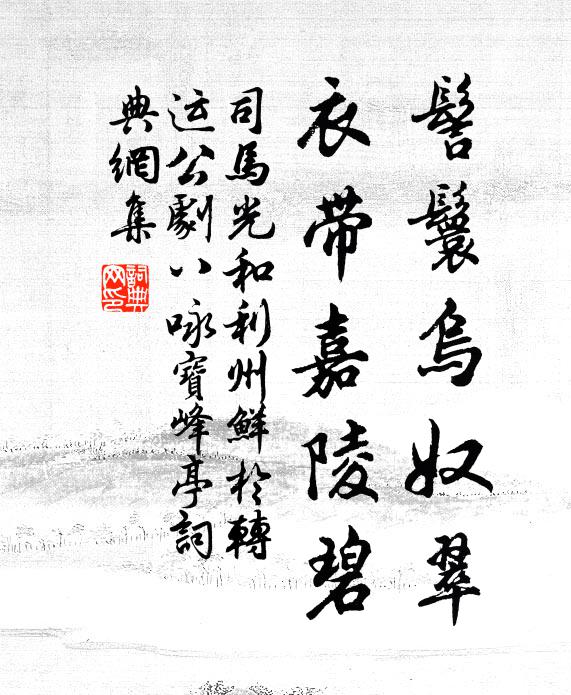 髻鬟烏奴翠
衣帶嘉陵碧
司馬光和利州鮮於轉
運公劇八咏寶峰亭詞
典網集
詞典網印